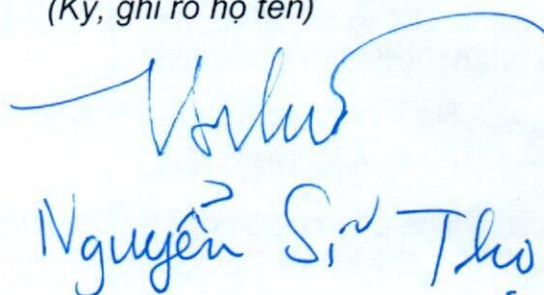 (Ký, ghi rõ họ tên)
Nguyễn Sĩ Thọ